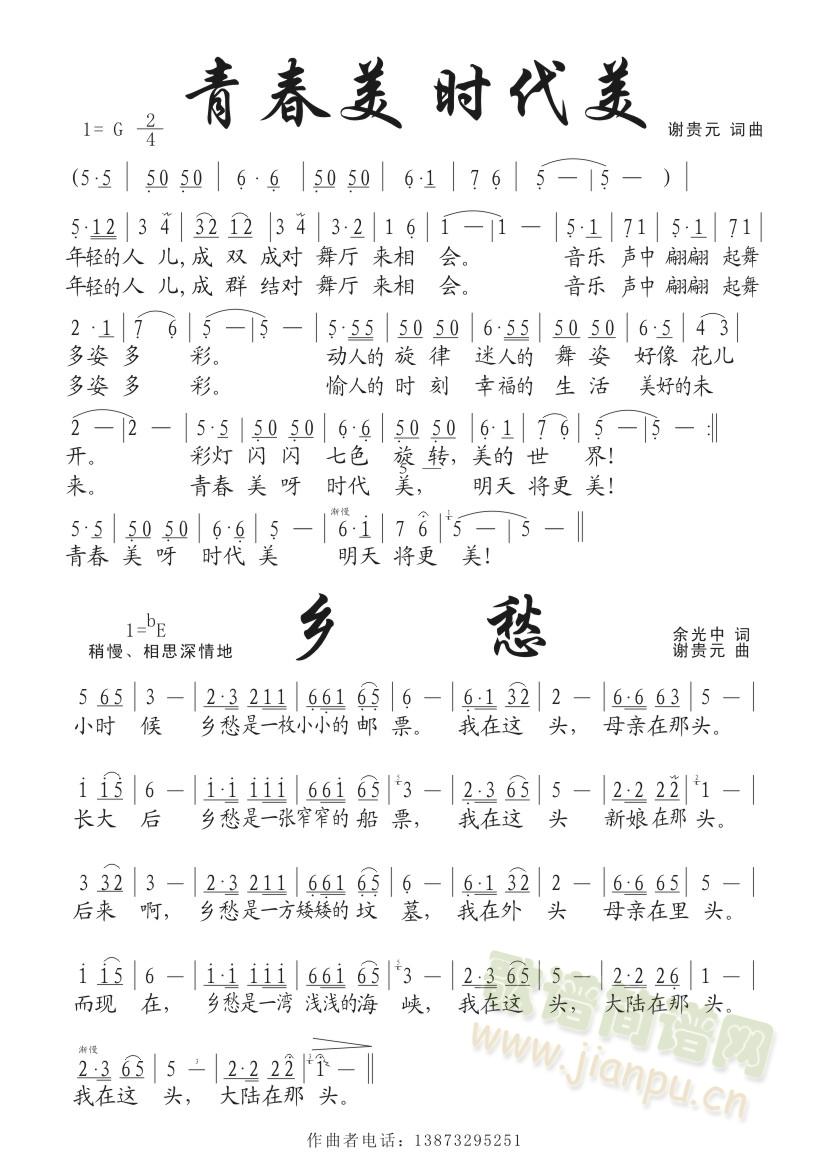 青春美 时代美
1= G 2/4
谢贵元 词曲
(5·5 | 50 50 | 6·6 | 50 50 | 6·1 | 7 6 | 5 — | 5 — ) |
5·12 | 3 4 | 32 12 | 3 4 | 3·2 | 1 6 | 1 — | 1 — | 5·1 | 71 | 5·1 | 71 |
年轻的人 儿,成 双 成对 舞厅 来相 会。 音乐 声中 翩翩 起舞
年轻的人 儿,成 群 结对 舞厅 来相 会。 音乐 声中 翩翩 起舞
2·1 | 7 6 | 5 — | 5 — | 5·55 | 50 50 | 6·55 | 50 50 | 6·5 | 4 3 |
多姿 多 彩。 动人的 旋 律 迷人的 舞 姿 好像 花儿
多姿 多 彩。 愉人的 时 刻 幸福的 生 活 美好的未
2 — | 2 — | 5·5 | 50 50 | 6·6 | 50 50 | 6·1 | 7 6 | 5 — | 5 — :||
开。 彩灯 闪 闪 七色 旋 转,美的 世 界!
5 —
来。 青春 美 呀 时代 美, 明天 将更 美!
渐慢
5·5 | 50 50 | 6·6 | 5 — | 6·i | 7 6 | 5 — | 5 — ||
青春 美 呀 时代 美 明天 将更 美!
乡 愁
1=bE
余光中 词
稍慢、相思深情地
谢贵元 曲
5 65 | 3 — | 2·3 211 | 661 65 | 6 — | 6·1 32 | 2 — | 6·6 63 | 5 — |
小时 候 乡愁是一枚小小的 邮 票。 我在这 头, 母亲在那头。
i i5 | 6 — | i·i iii | 66i 65 | 3 — | 2·3 65 | 5 — | 2·2 22 | 1 — |
长大 后 乡愁是一张窄窄的 船 票, 我在这 头 新娘在那 头。
3 32 | 3 — | 2·3 211 | 661 65 | 6 — | 6·1 32 | 2 — | 6·6 65 | 5 — |
后来 啊, 乡愁是一方矮矮的 坟 墓, 我在外 头 母亲在里 头。
i i5 | 6 — | i·i iii | 66i 65 | 3 — | 2·3 65 | 5 — | 2·2 26 | 1 — |
而现 在, 乡愁是一湾 浅浅的海 峡, 我在这 头, 大陆在那 头。
渐慢
2·3 65 | 5 — | 2·2 22 | 1 — ||
我在这 头, 大陆在那 头。
歌谱简谱网
www.jianpu.cn
作曲者电话：13873295251